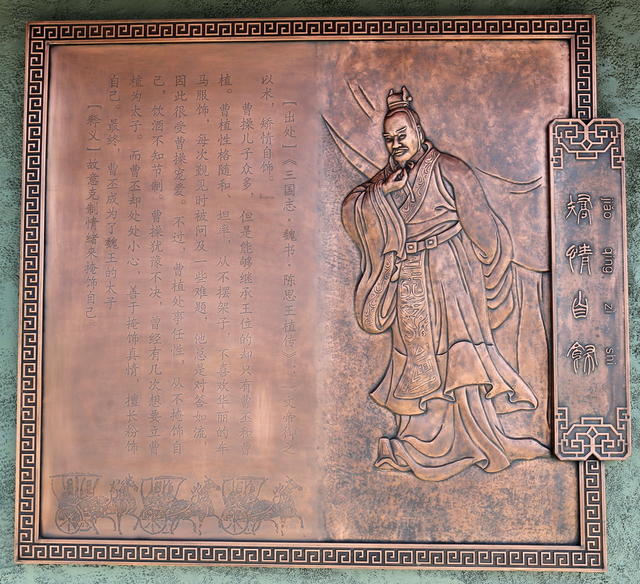 矫情自饰
jiǎo qíng zì shì
[出处]《三国志·魏书·陈思王植传》：“文帝御之
以术，矫情自饰。”
曹操儿子众多，但是能够继承王位的却只有曹丕和曹
植。曹植性格随和、坦率，从不摆架子，不喜欢华丽的车
马服饰，每次觐见时被问及一些难题，他总是对答如流，
因此很受曹操宠爱。不过，曹植处事任性，从不掩饰自
己，饮酒不知节制。曹操犹豫不决，曾经有几次想要立曹
植为太子。而曹丕却处处小心，善于掩饰真情，擅长粉饰
自己。最终，曹丕成为了魏王的太子
[释义]故意克制情绪来掩饰自己